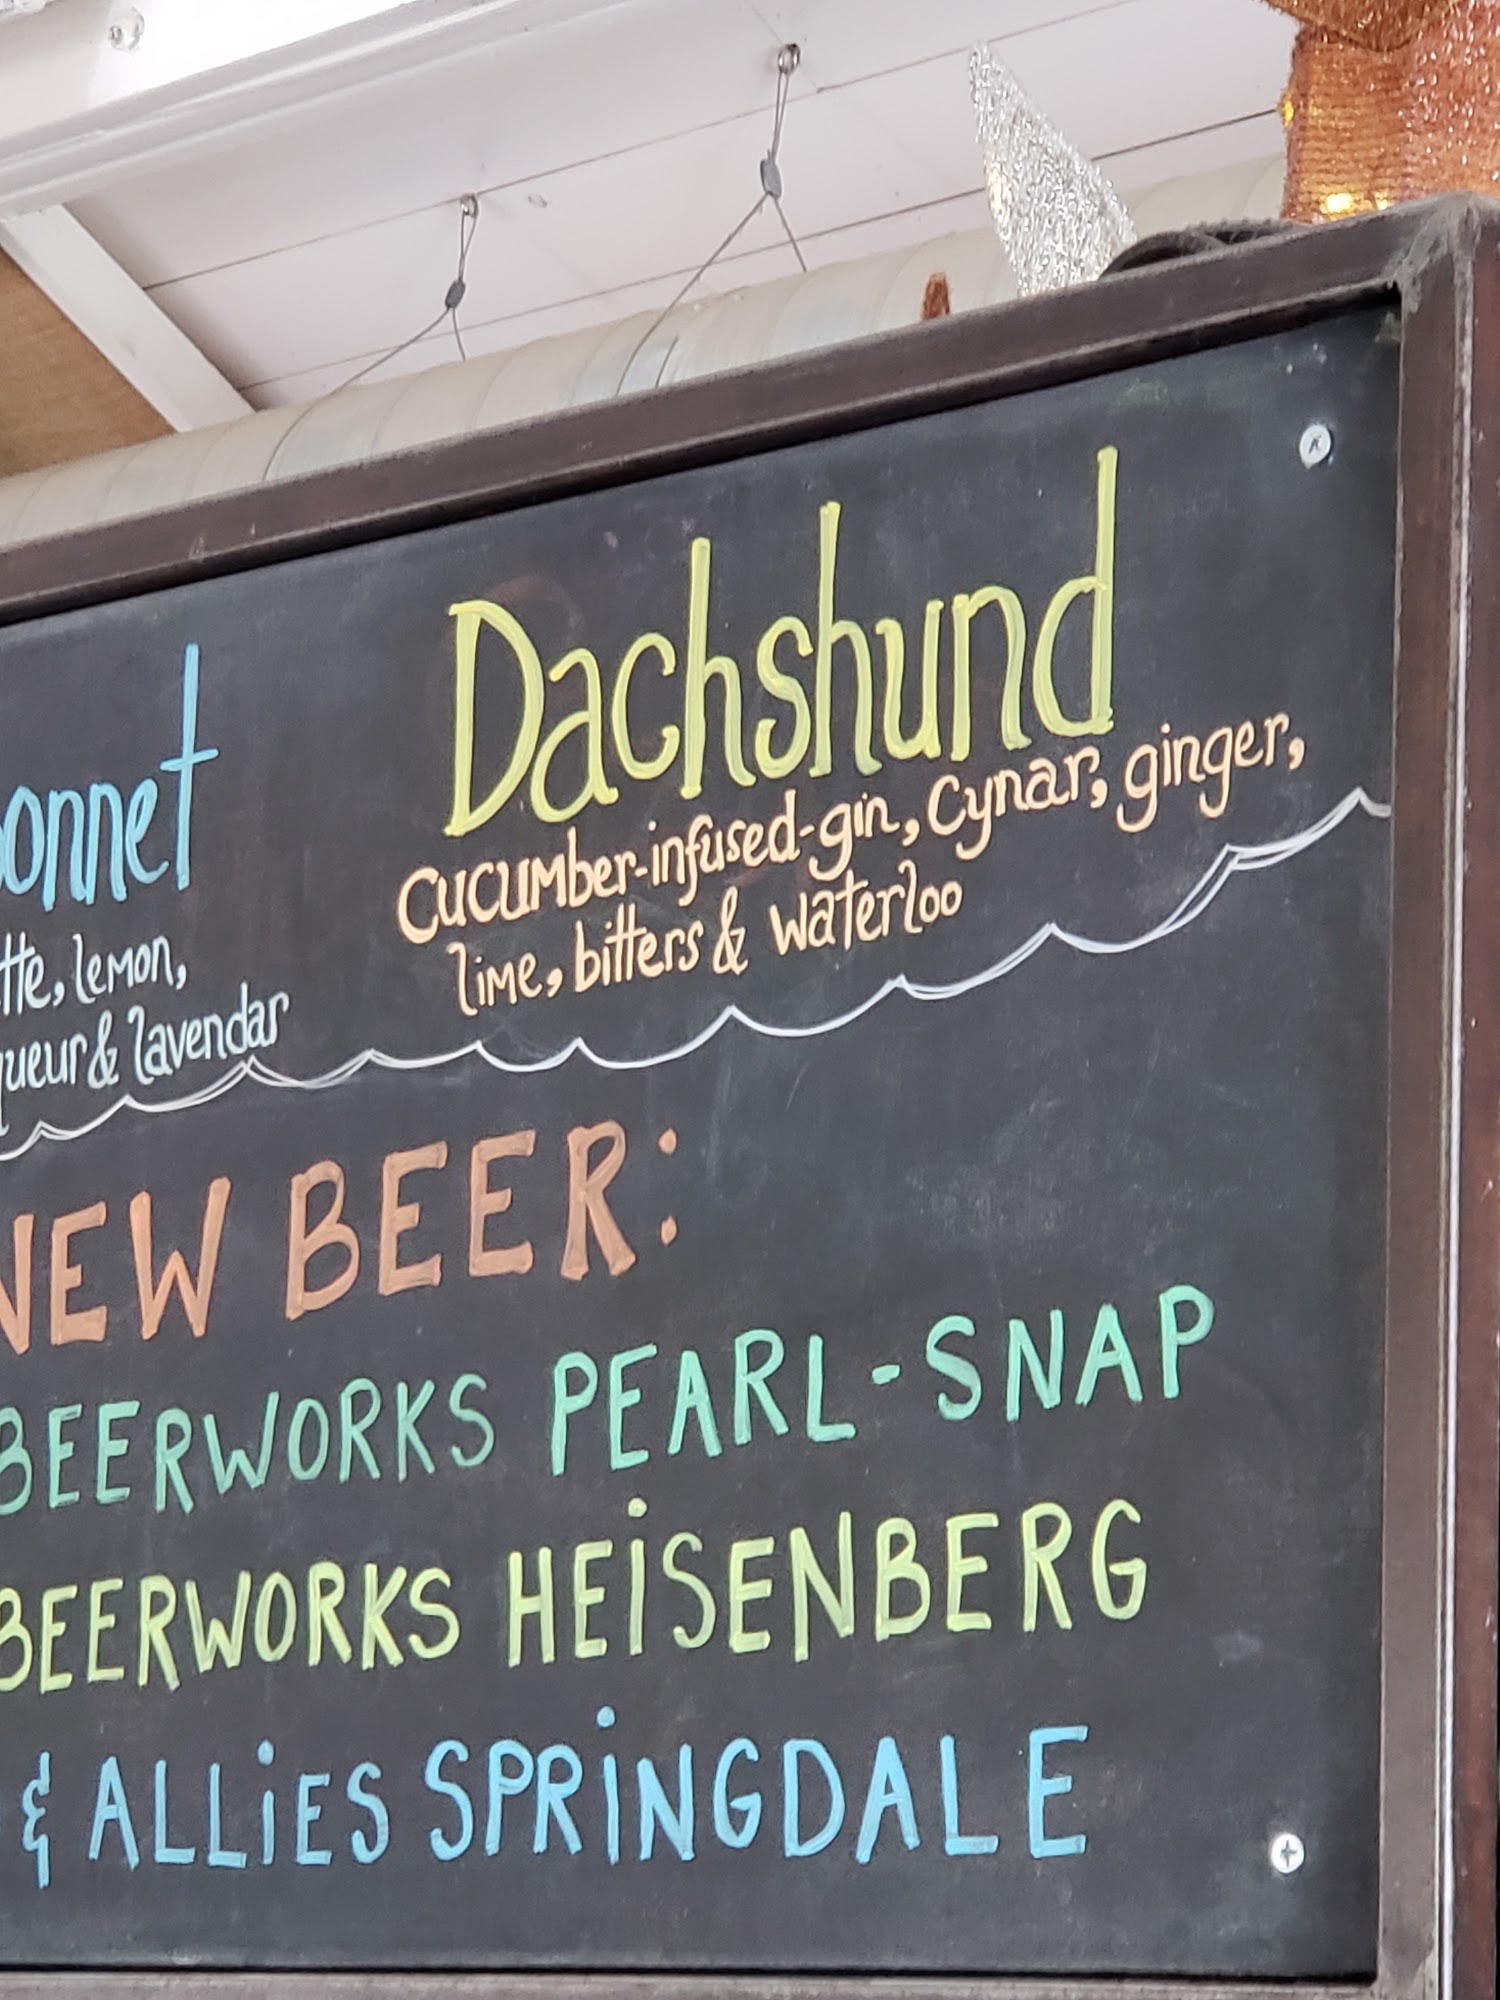 Dachshund
Cucumber-infused-gin, Cynar, ginger,
lime, bitters & waterloo
onnet
lemon,
& lavendar
NEW BEER:
BEERWORKS PEARL-SNAP
BEERWORKS HEISENBERG
& ALLIES SPRINGDALE